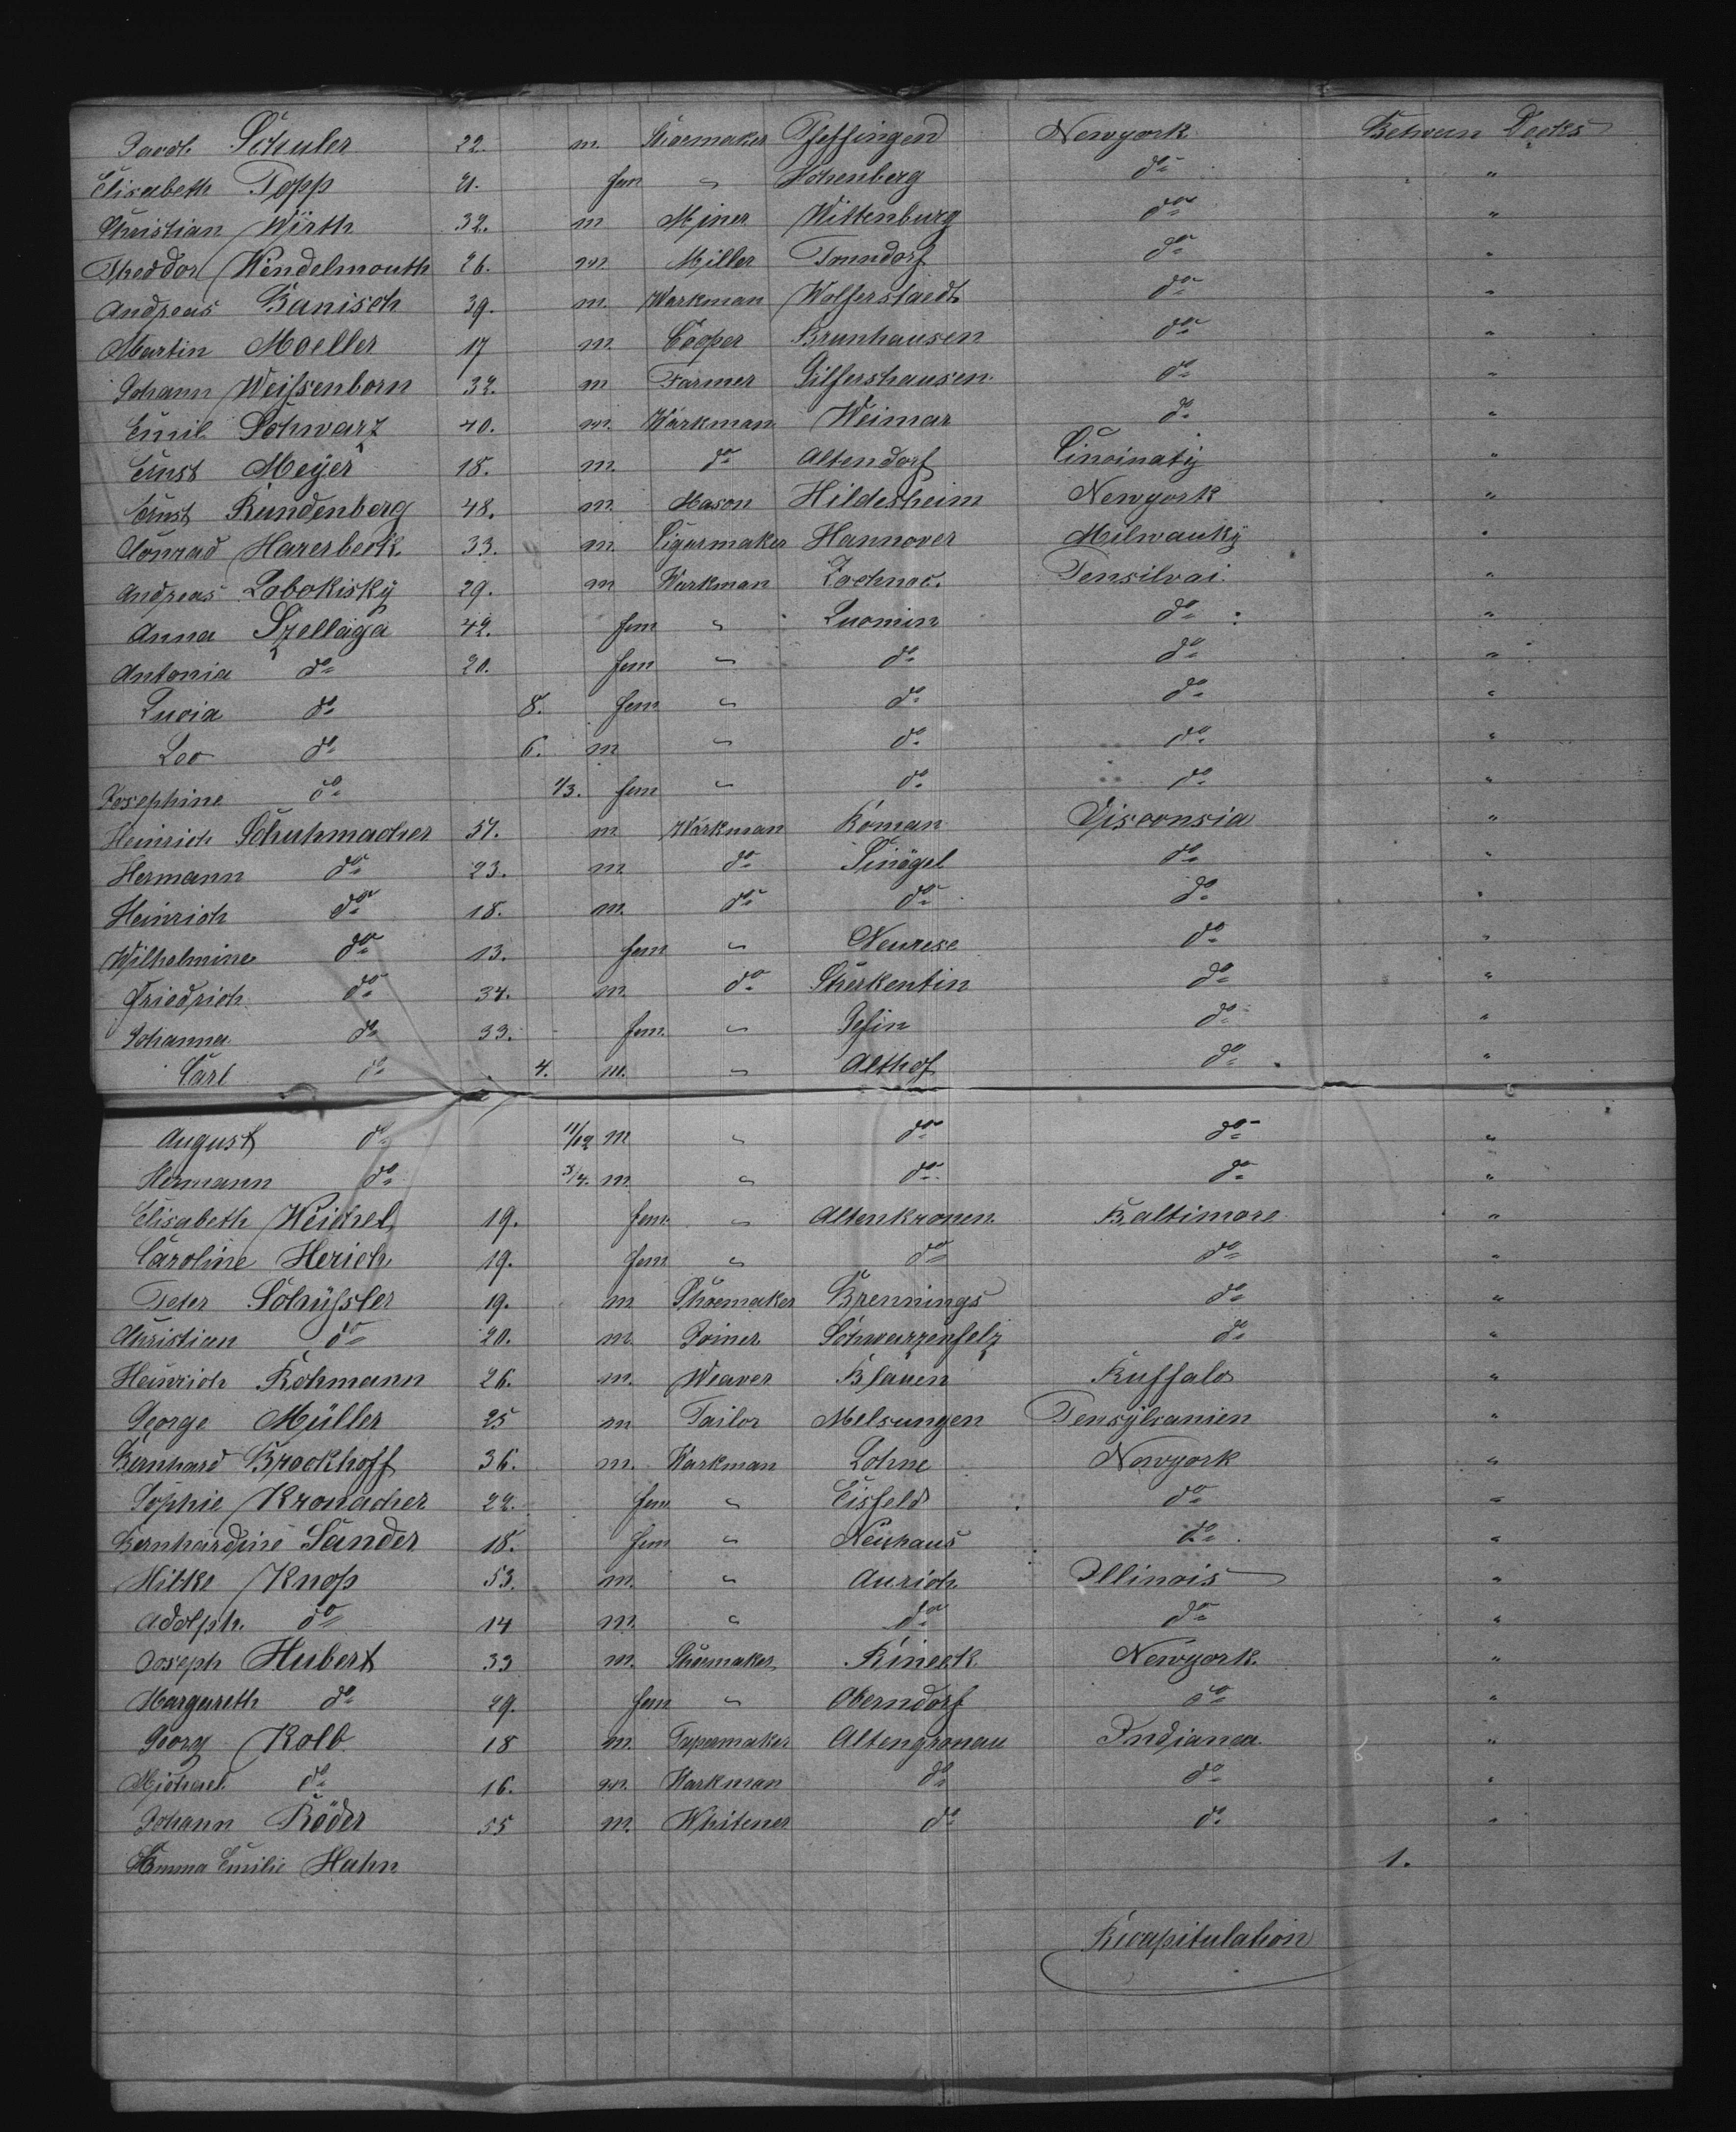 Jacob Schuler 22. m. Shoemaker Pfeffingen Newyork Between Decks
Elisabeth Topp 21. fem " Hohenberg do "
Christian Wirth 32. m Miner Wittenburg do "
Theodor Wendelmouth 26. m. Miller Tonndorf do "
Andreas Banisch 39. m. Workman Wolferstaedt do "
Martin Moeller 17 m. Cooper Brunhausen do "
Johann Weißenborn 32. m Farmer Gilfershausen do "
Emil Schwarz 40. m. Workman Weimar do "
Ernst Meyer 18. m. do Altendorf Cincinaty "
Ernst Rundenberg 48. m. Mason Hildesheim Newyork "
Conrad Harerbeck 33. m. Cigarmaker Hannover Milwauky "
Andreas Lobokisky 29. m Workman Zochnoc. Pensilvai "
Anna Szellaga 42. fem " Luomin do "
Antonia do 20. fem " do do "
Lucia do 8. fem " do do "
Leo do 6. m " do do "
Josephine do 1/3. fem " do do "
Heinrich Schuhmacher 57. m Workman Roman Visconsia "
Hermann do 23. m do Sinögel do "
Heinrich do 18. m. do do do "
Wilhelmine do 13. fem " Neurese do "
Friedrich do 34. m do Sherkentin do "
Johanna do 33. fem. " Jeßin do "
Carl do 4. m. " Althof do "
August do 11/12 m " do do "
Hermann do 3/4. m " do do "
Elisabeth Weichel 19. fem. " Altenkronen Baltimore "
Caroline Herich 19. fem " do do "
Peter Schüßler 19. m Shoemaker Brennings do "
Christian do 20. m. Joiner Schwarzenfelz do "
Heinrich Rohmann 26. m. Weaver Blauen Buffalo "
George Müller 25 m Tailor Melsungen Pensylvanien "
Bernhard Brockhoff 36. m. Workman Lohne Newyork "
Sophie Kronacher 22. fem " Eisfeld do "
Bernhardine Sander 18. fem " Neuhaus do "
Hilke Knop 53. m. " Aurich Illinois "
Adolph. do 14 m. " do do "
Joseph Hubert 33 m. Shoemaker Rineck Newyork "
Margareth do 29. fem " Oberndorf do "
Georg Kolb 18 m. Papermaker Altengronau Indianea. "
Michael do 16. m. Workman do do "
Johann Röder 55 m. Whitener do do "
Emma Emilie Hahn 1.
Recapitulation